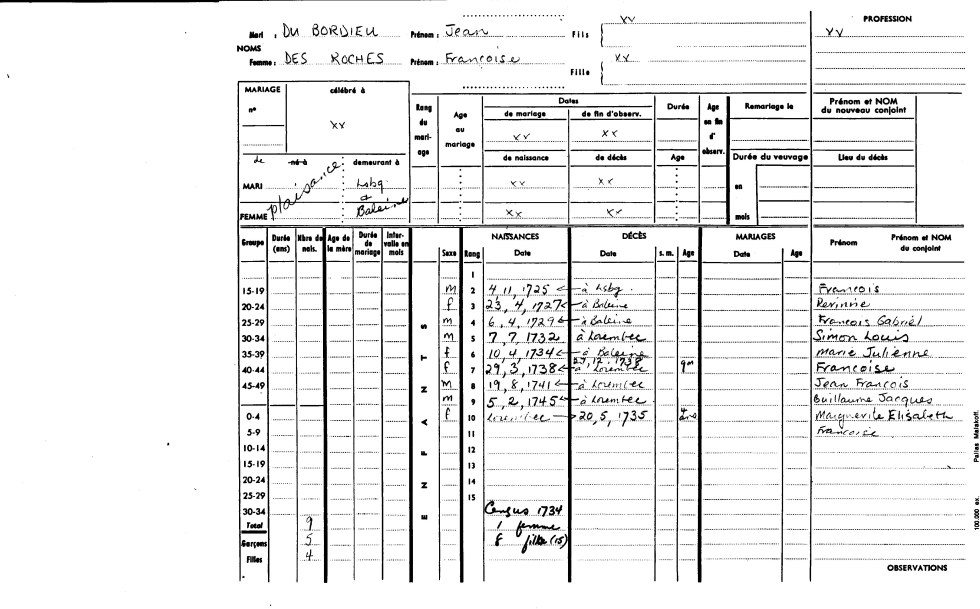 Mari : DU BORDIEU Prénom : Jean Fils { XX PROFESSION
XX
NOMS
Femme : DES ROCHES Prénom : Francoise Fille { XX
MARIAGE célébré à
n° XX
Rang du mariage Age au mariage Dates Durée Age en fin d' observ. Remariage le Prénom et NOM du nouveau conjoint
de mariage de fin d'observ.
XX XX
de né à demeurant à
de naissance de décès Age Durée du veuvage Lieu du décès
MARI plaisance Lsbg XX XX en
& Baleine
FEMME XX XX mois
Groupe Durée (ans) Nbre de nais. Age de la mère Durée de mariage Intervalle en mois Sexe Rang NAISSANCES Date DÉCÈS Date s. m. Age MARIAGES Date Age Prénom Prénom et NOM du conjoint
ENFANTS
1
15-19 m 2 4 11, 1725 à Lsbg. Francois
20-24 f 3 23, 4, 1727 à Baleine
25-29 m 4 6, 4, 1729 à Baleine Francois Gabriel
30-34 m 5 7, 7, 1732 à Lorembec Simon Louis
35-39 f 6 10, 4, 1734 à Baleine Marie Julienne
40-44 f 7 29, 3, 1738 27, 12, 1738 à Lorembec 9m Francoise
45-49 m 8 19, 8, 1741 à Lorembec Jean Francois
m 9 5, 2, 1745 à Lorembec Guillaume Jacques
0-4 f 10 Lorembec 20, 5, 1735 4 ans Marguerite Elisabeth
5-9 11 Francoise
10-14 12
15-19 13
20-24 14
25-29 15
30-34 Census 1734
Total 9 1 femme
Garçons 5 8 fille (15)
Filles 4
OBSERVATIONS
100.000 ex. Pallas Malakoff.